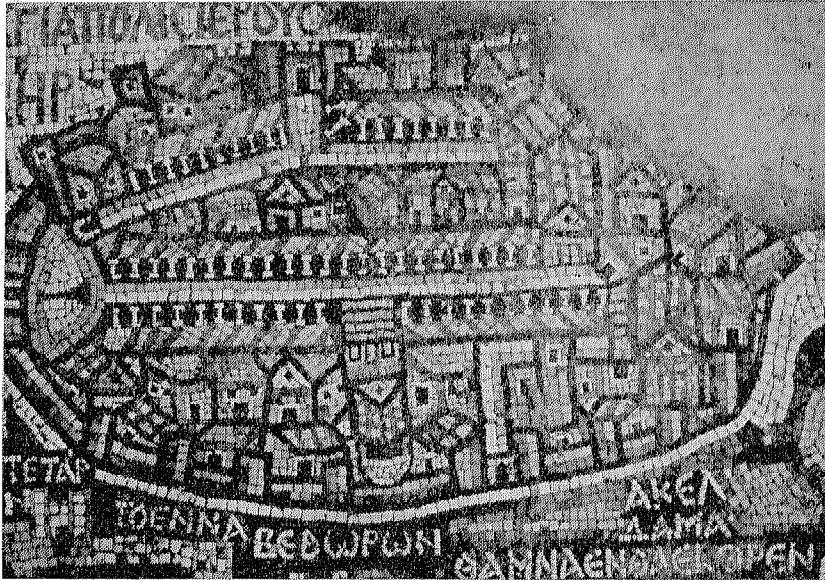 ΓΙΑΠΟΛΙϹΙΕΡΟΥϹ
ΗΡ
ΤΕΤΑΡ
Ν
ΤΟΕΝΝΑ
ΒΕΘΩΡΩΝ
ΑΚΕΛ
ΔΑΜΑ
ΘΑΜΝΑΕΝΘΑΕΚΙΡΕΝ